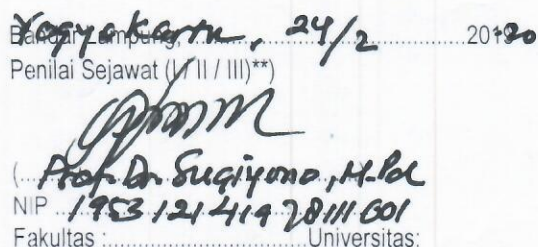 Bandar Lampung, Yogyakarta, 24/2 2019 20
Penilai Sejawat (I / II / III)**)
(Prof. Dr. Sugiyono, M.Pd
NIP 195312141978111001
Fakultas : Universitas: